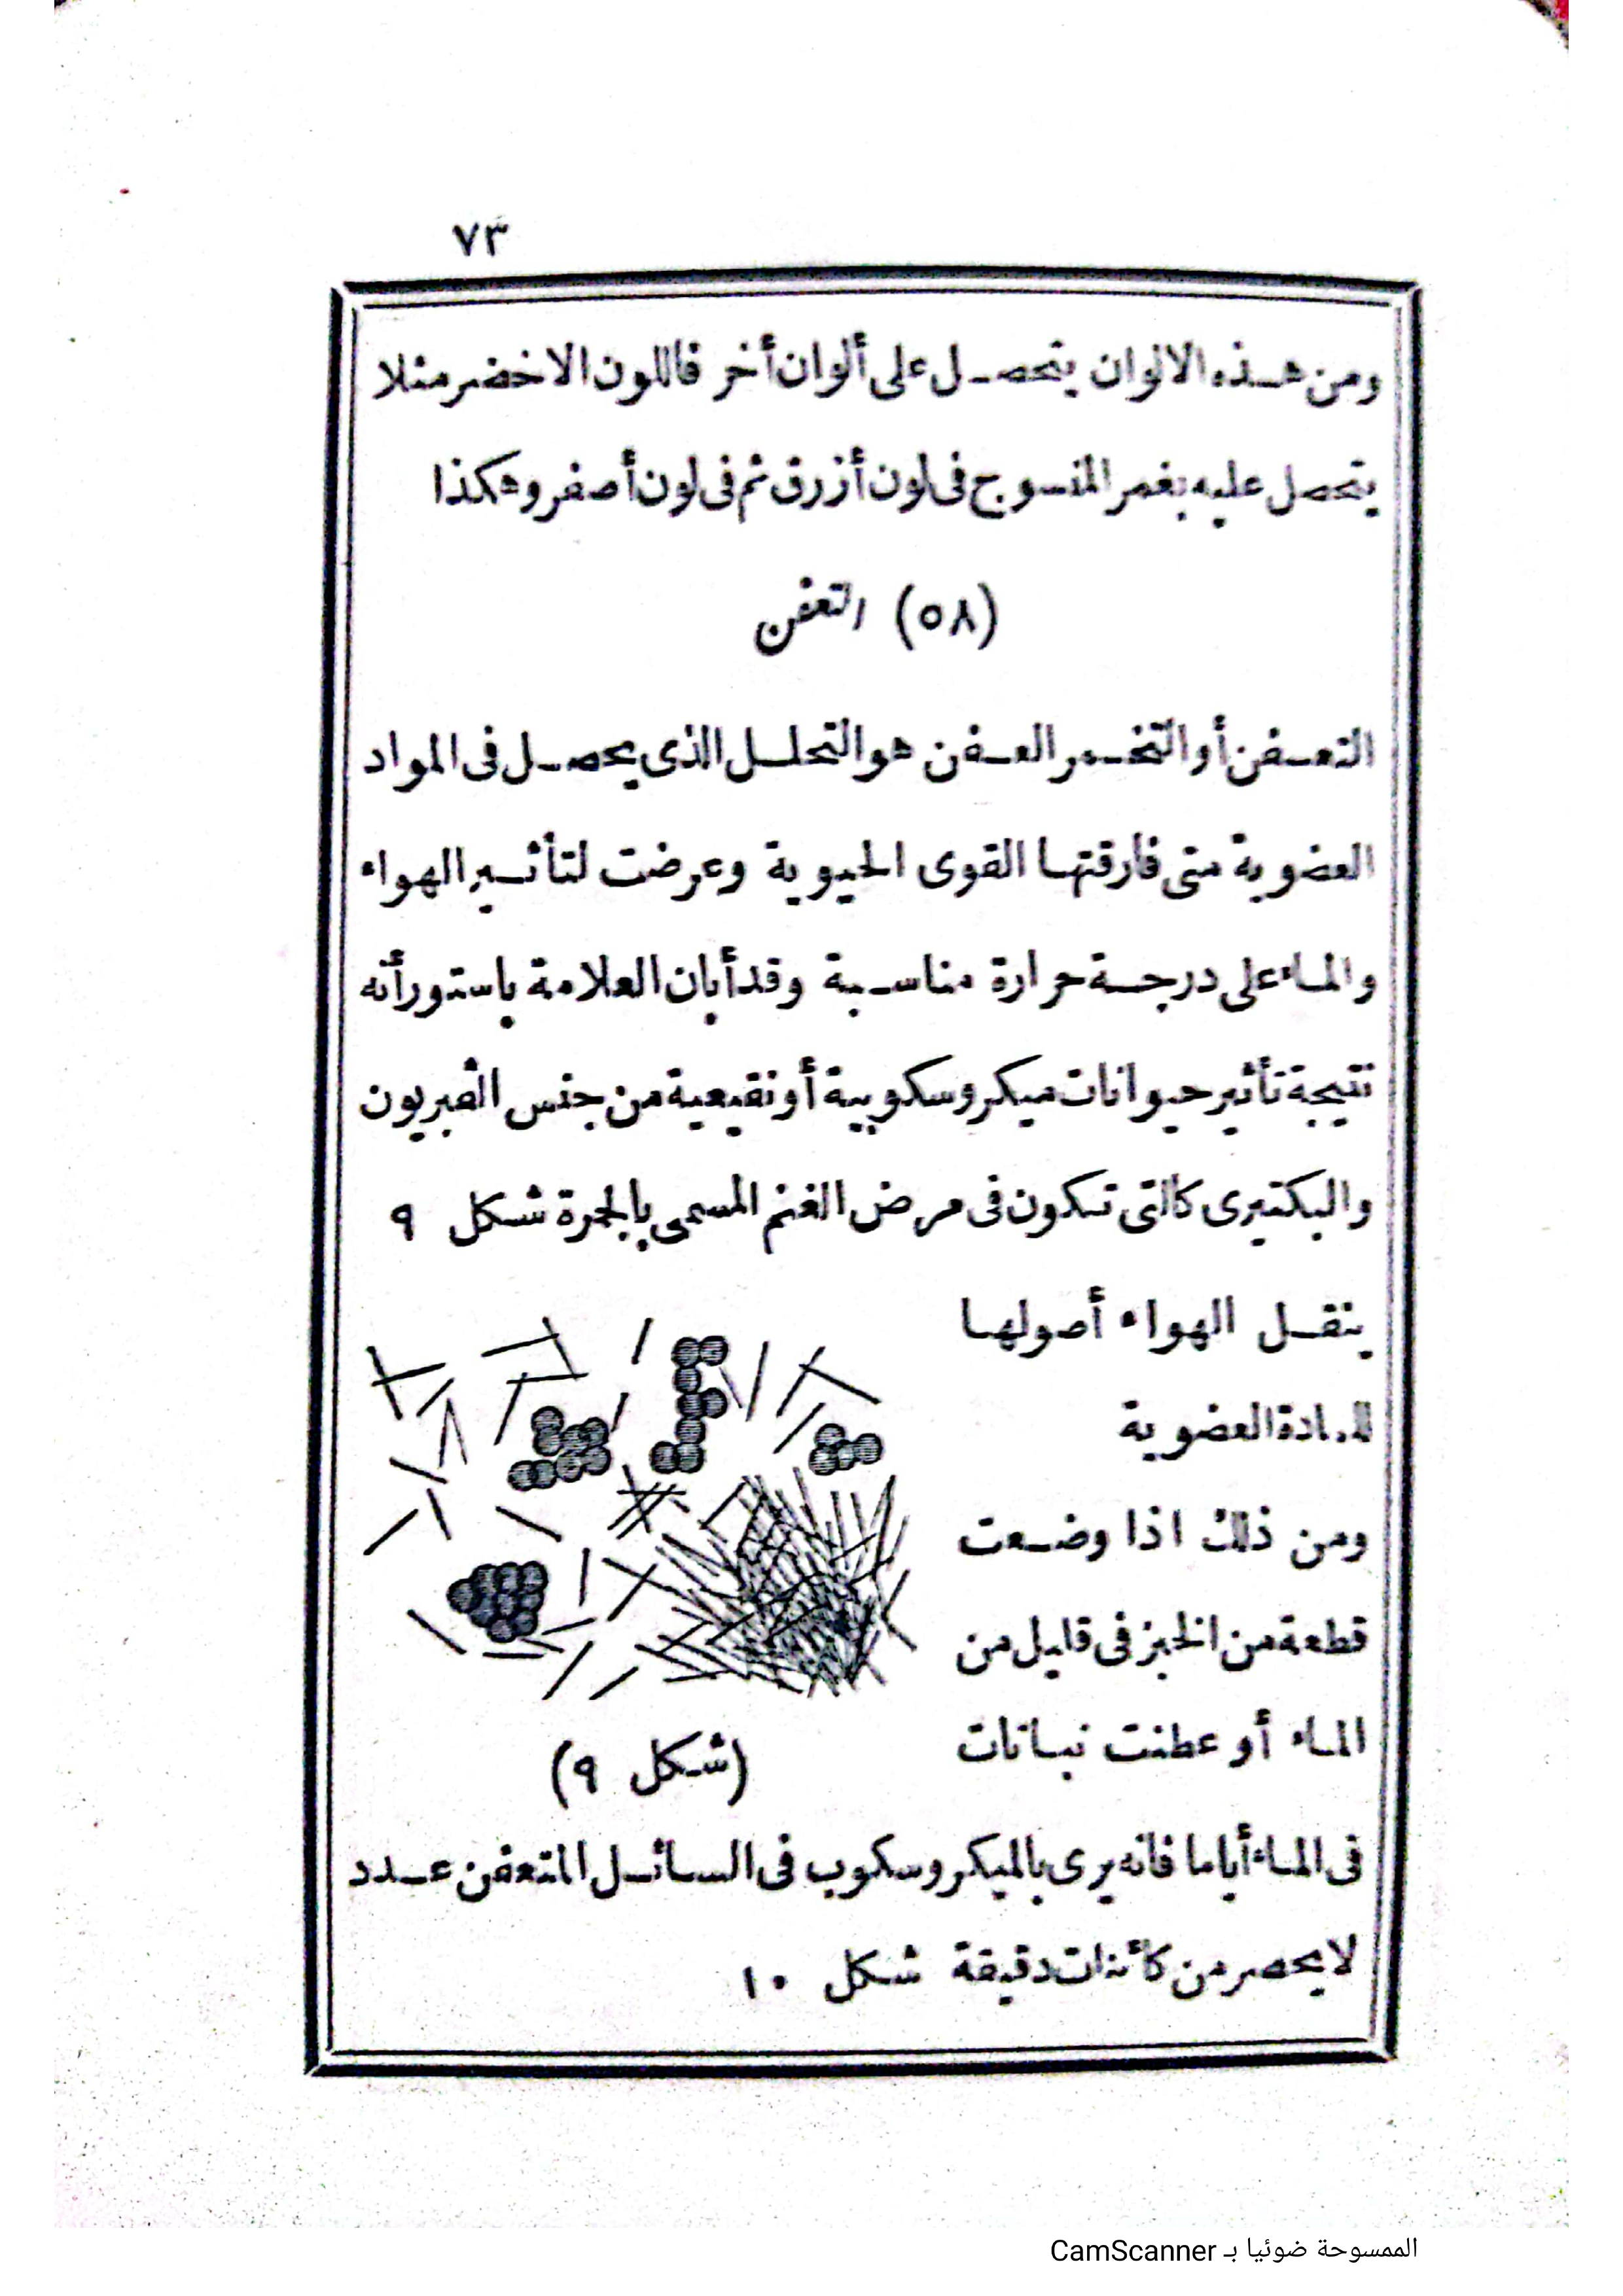 ٧٣
ومن هذه الالوان يتحصل على ألوان أخر فاللون الاخضر مثلا
يتحصل عليه بغمر المنسوج فى لون أزرق ثم فى لون أصفر وهكذا
(٥٨) التعفن
التعفن أو التخمر العفن هو التحلل الذى يحصل فى المواد
العضوية متى فارقتها القوى الحيوية وعرضت لتأثير الهواء
والماء على درجة حرارة مناسبة وقد أبان العلامة باستور أنه
نتيجة تأثير حيوانات ميكروسكوبية أو نقيعية من جنس الفبريون
والبكتيرى كالتى تتكون فى مرض الغنم المسمى بالجمرة شكل ٩
ينقل الهواء أصولها
للمادة العضوية
ومن ذلك اذا وضعت
قطعة من الخبز فى قليل من
الماء أو عطنت نباتات
(شكل ٩)
فى الماء أياما فانه يرى بالميكروسكوب فى السائل المتعفن عدد
لا يحصر من كائنات دقيقة شكل ١٠
الممسوحة ضوئيا بـ CamScanner